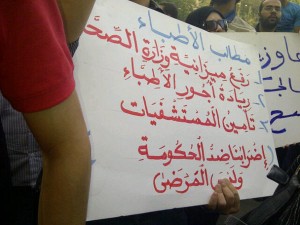 مطالب الأطباء
1- رفع ميزانية وزارة الصحة
2- زيادة أجور الأطباء
3- تأمين المستشفيات
إضرابنا ضد الحكومة
وليس المرضى